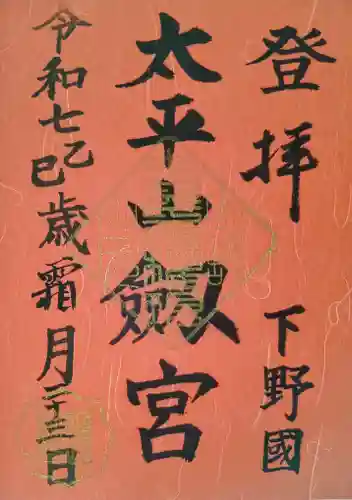 登拝 下野國
太平山劔宮
令和七乙巳歳霜月二十三日